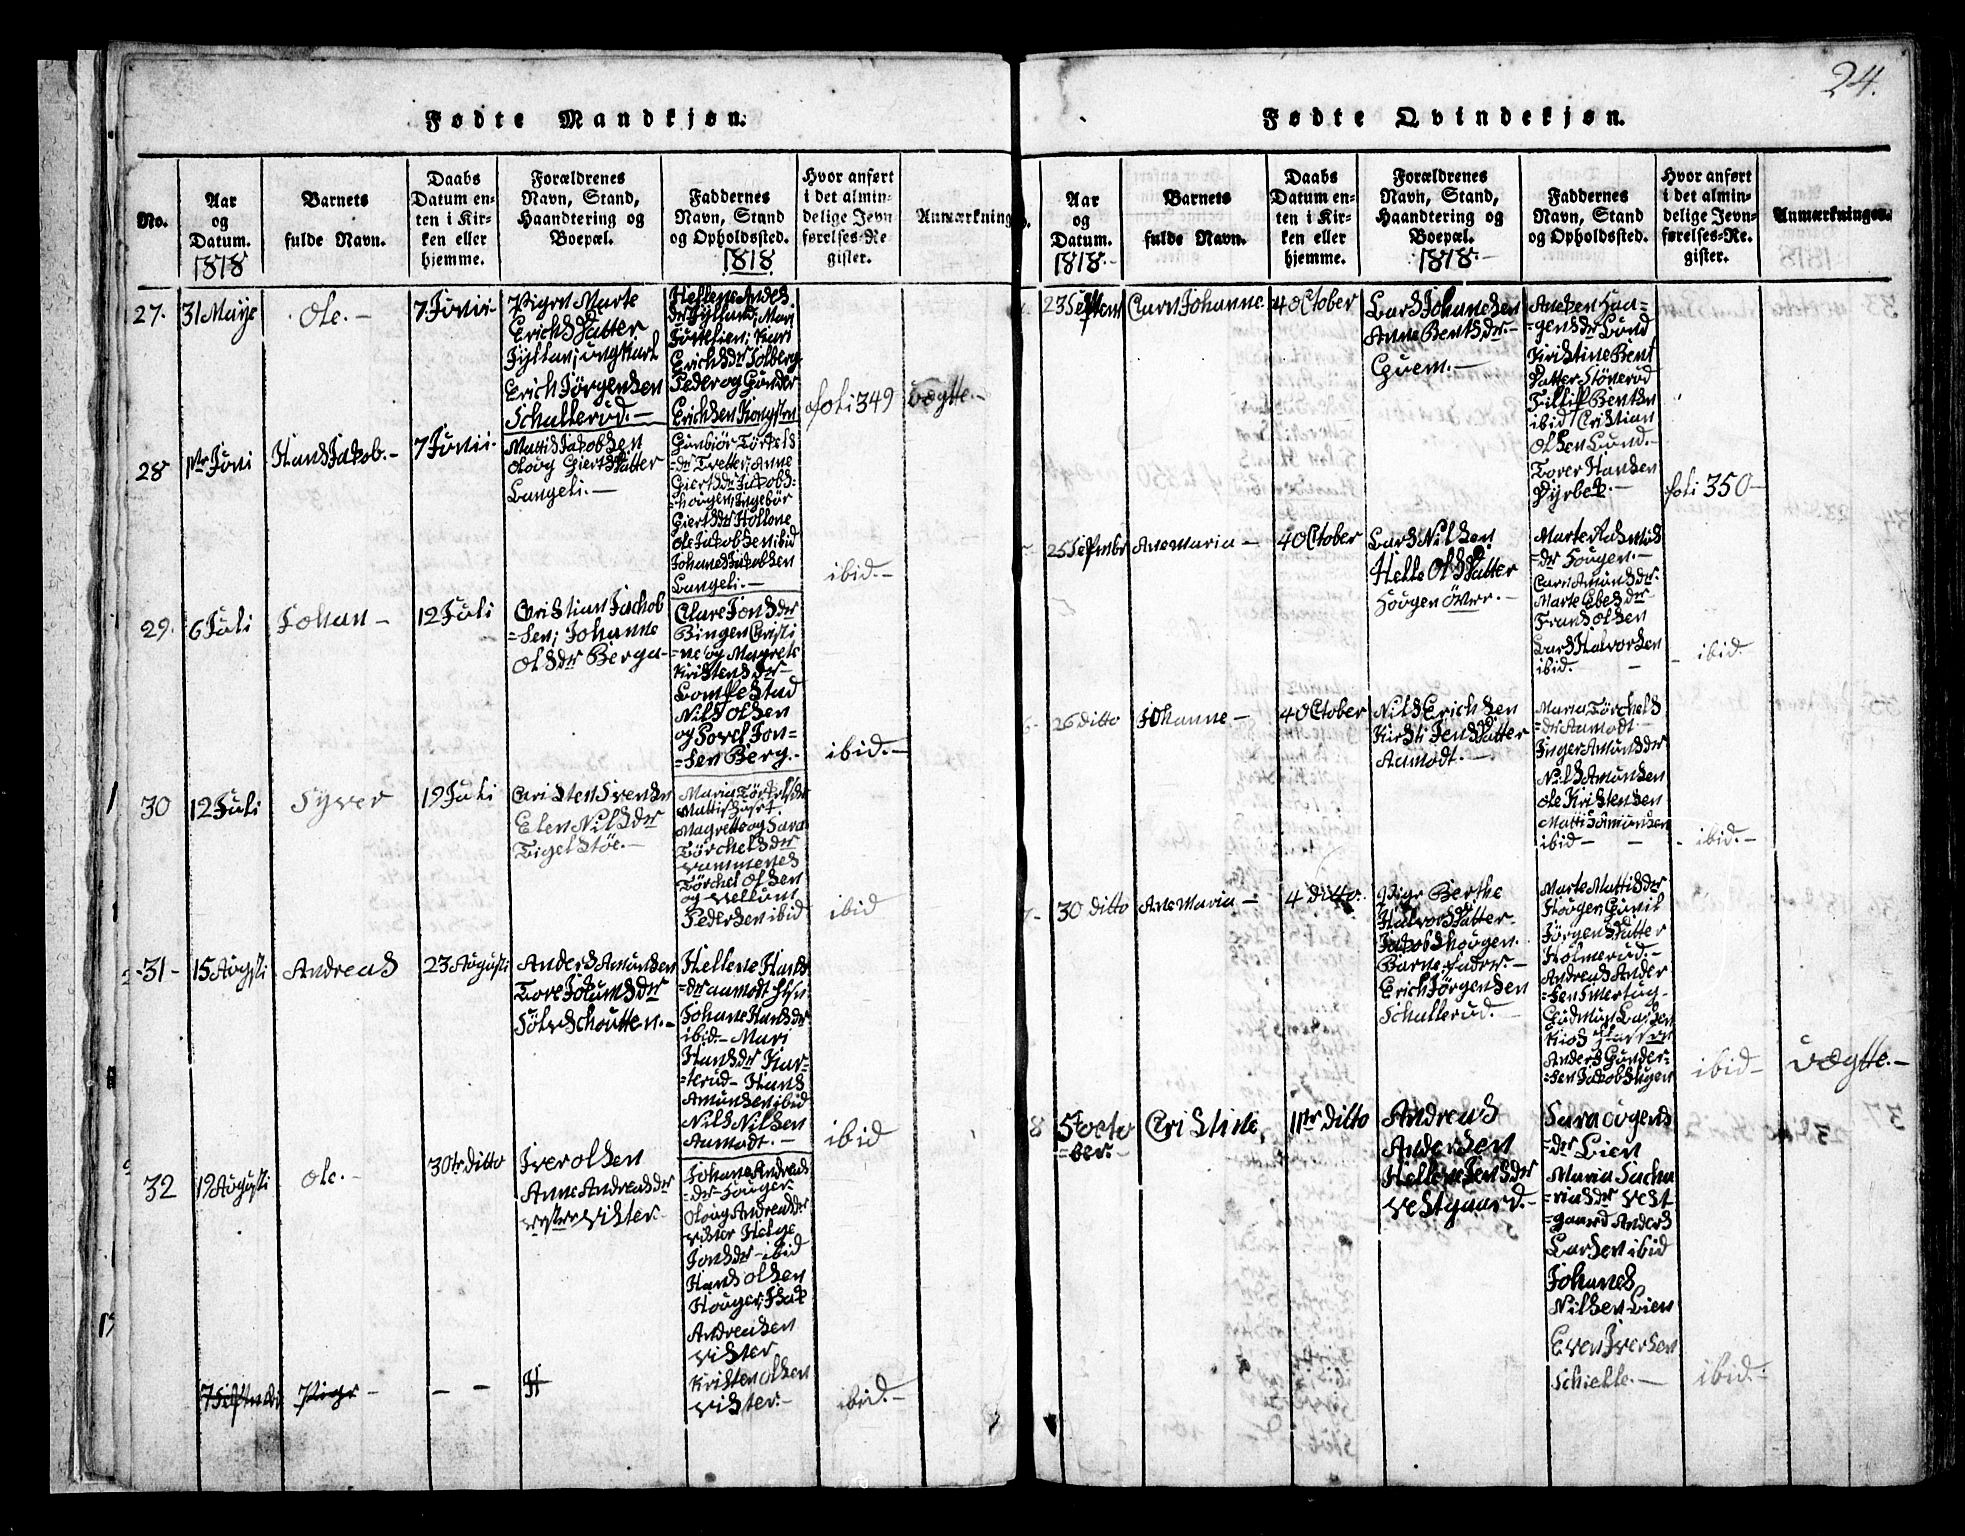 24.
Fødte Mandkjøn.
No.
Aar
og
Datum.
1818
Barnets
fulde Navn.
Daabs
Datum en-
ten i Kir-
ken eller
hjemme.
Forældrenes
Navn, Stand,
Haandtering og
Boepæl.
Faddernes
Navn, Stand
og Opholdssted.
1818
Hvor anført
i det almin-
delige Jevn
førelses-Re
gister.
Anmærkning
27.
31 Maije
Ole.-
7 Junii
Pigen Marte
Erichsdatter
ungkarl
Erich Jörgensen
Schullerud.-
Erichsdr Tolberg
Peder og Gunder
Erichsen
foli 349
Uægtte.-
28
1ste Juni
Hans Jakob.-
7 Junii
Mattis Jakobsen
Oloug Giertsdatter
Langeli.-
Gunbiör Törkels
=dr Tvetter; Anne
Giertsdr Jakobs=
=hougen; Ingebör
Giertsdr Hollone
Ole Jakobsen ibid
Johanes Jakobsen
Langeli.-
ibid.-
29.
6 Juli
Johan-
12 Juli
Christian Jachob
=sen; Johanne
Olsdr Berga-
Clare Jonsdr
Bingen Christi
=ne og Magrete
Kristensdr-
Lompestad
Nils Olsen
og Povel Jon=
=sen Berg.-
ibid.-
30
12 Juli
Syver
19 Juli
Christen Svensen
Elen Nilsdr
Tigelstöe.-
Maria Törkelsdr
Mattishuset
Magrette og Sara
Törchelsdr
Vammenes
Törchel Olsen
og Vellum
Pedersen ibid
ibid
-31-
15 Augsti
Andreas
23 Augusti
Anders Amunsen
Tore
Sölvschoutten.-
Hellene Hans
=dr Aamodt
Johane Hansdr
ibid.- Mari
Hansdr Kar=
=terud- Hans
Amunsen ibid
Nils Nilsen
Aamodt.-
ibid
32
19 Augusti
Ole.-
30te ditto
Iver Olsen
Anne Andreasdr
Vestre Vister.-
Johane Andreas
=dr- Houger-
Oloug Andreasdr
Vister Helge
Jonsdr- ibid
Hans Olsen
Houger; Isak
Andreasen
Vister
Kristen Olsen
Vister.-
ibid.-
Pige-
- -
Fødte Qvindekjøn.
Aar
og
Datum.
1818.-
Barnets
fulde Navn.
Daabs
Datum en-
ten i Kir-
ken eller
hjemme.
Forældrenes
Navn, Stand,
Haandtering og
Boepæl.
1818.-
Faddernes
Navn, Stand
og Opholdssted.
Hvor anført
i det almin-
delige Jevn-
førelses-Re.
gister.
Anmærkninger.
23 Septem
Carn Johanne
4 October
Lars Johanesen
Anne Bentsdr-
Guem.-
Anken Haa=
=gensdr Lund
Kirstine Bent
Datter Stönerud
Fillip Bentsen
ibid Cristian
Olsen Lund.-
Torer Hansen
Dyrbek.-
foli 350-
25 Septmbr
Ane Maria-
4 October
Lars Nilsen
Helle Olsdatter
Hougen över.-
=dr Hougen.-
Carn Amunsdr.
Marte Ebesdr-
Frans Olsen
Lars Halvorsen
ibid.-
ibid.
26 ditto
Johanne-
4 October
Nils Erichsen
Kirsti Jensdatter
Aamodt.-
Maria Törchels
=dr Aamodt-
Inger Amunsdr
Nils Amunsen
Ole Kristensen
Mattis Amunsen
ibid-
ibid.-
30 ditto
Ane Maria-
4 ditto.
Pige Berthe
Halvorsdatter
Jakobshougen.
Barnefader.-
Erich Jörgensen
Schullerud.-
Marte Mattisdr
Hougen; Gunil
Jörgensdatter
Holmerud.-
Andreas Ander
=sen
Gudmun Larsen
Anders Gunder=
=sen Jakobshugen
ibid-
Uægtte.-
8
5 octo
=ber.-
Cristine,
11te ditto
Andreas
Andersen
Hellene Jensdr
Vestgaard.-
Sara ougens
=dr Lien
Maria Sacha
=riasdr Vest
=gaard Anders
Larsen ibid
Johanes
Nilsen Lien
Even Iversen
Schielle.-
ibid.-